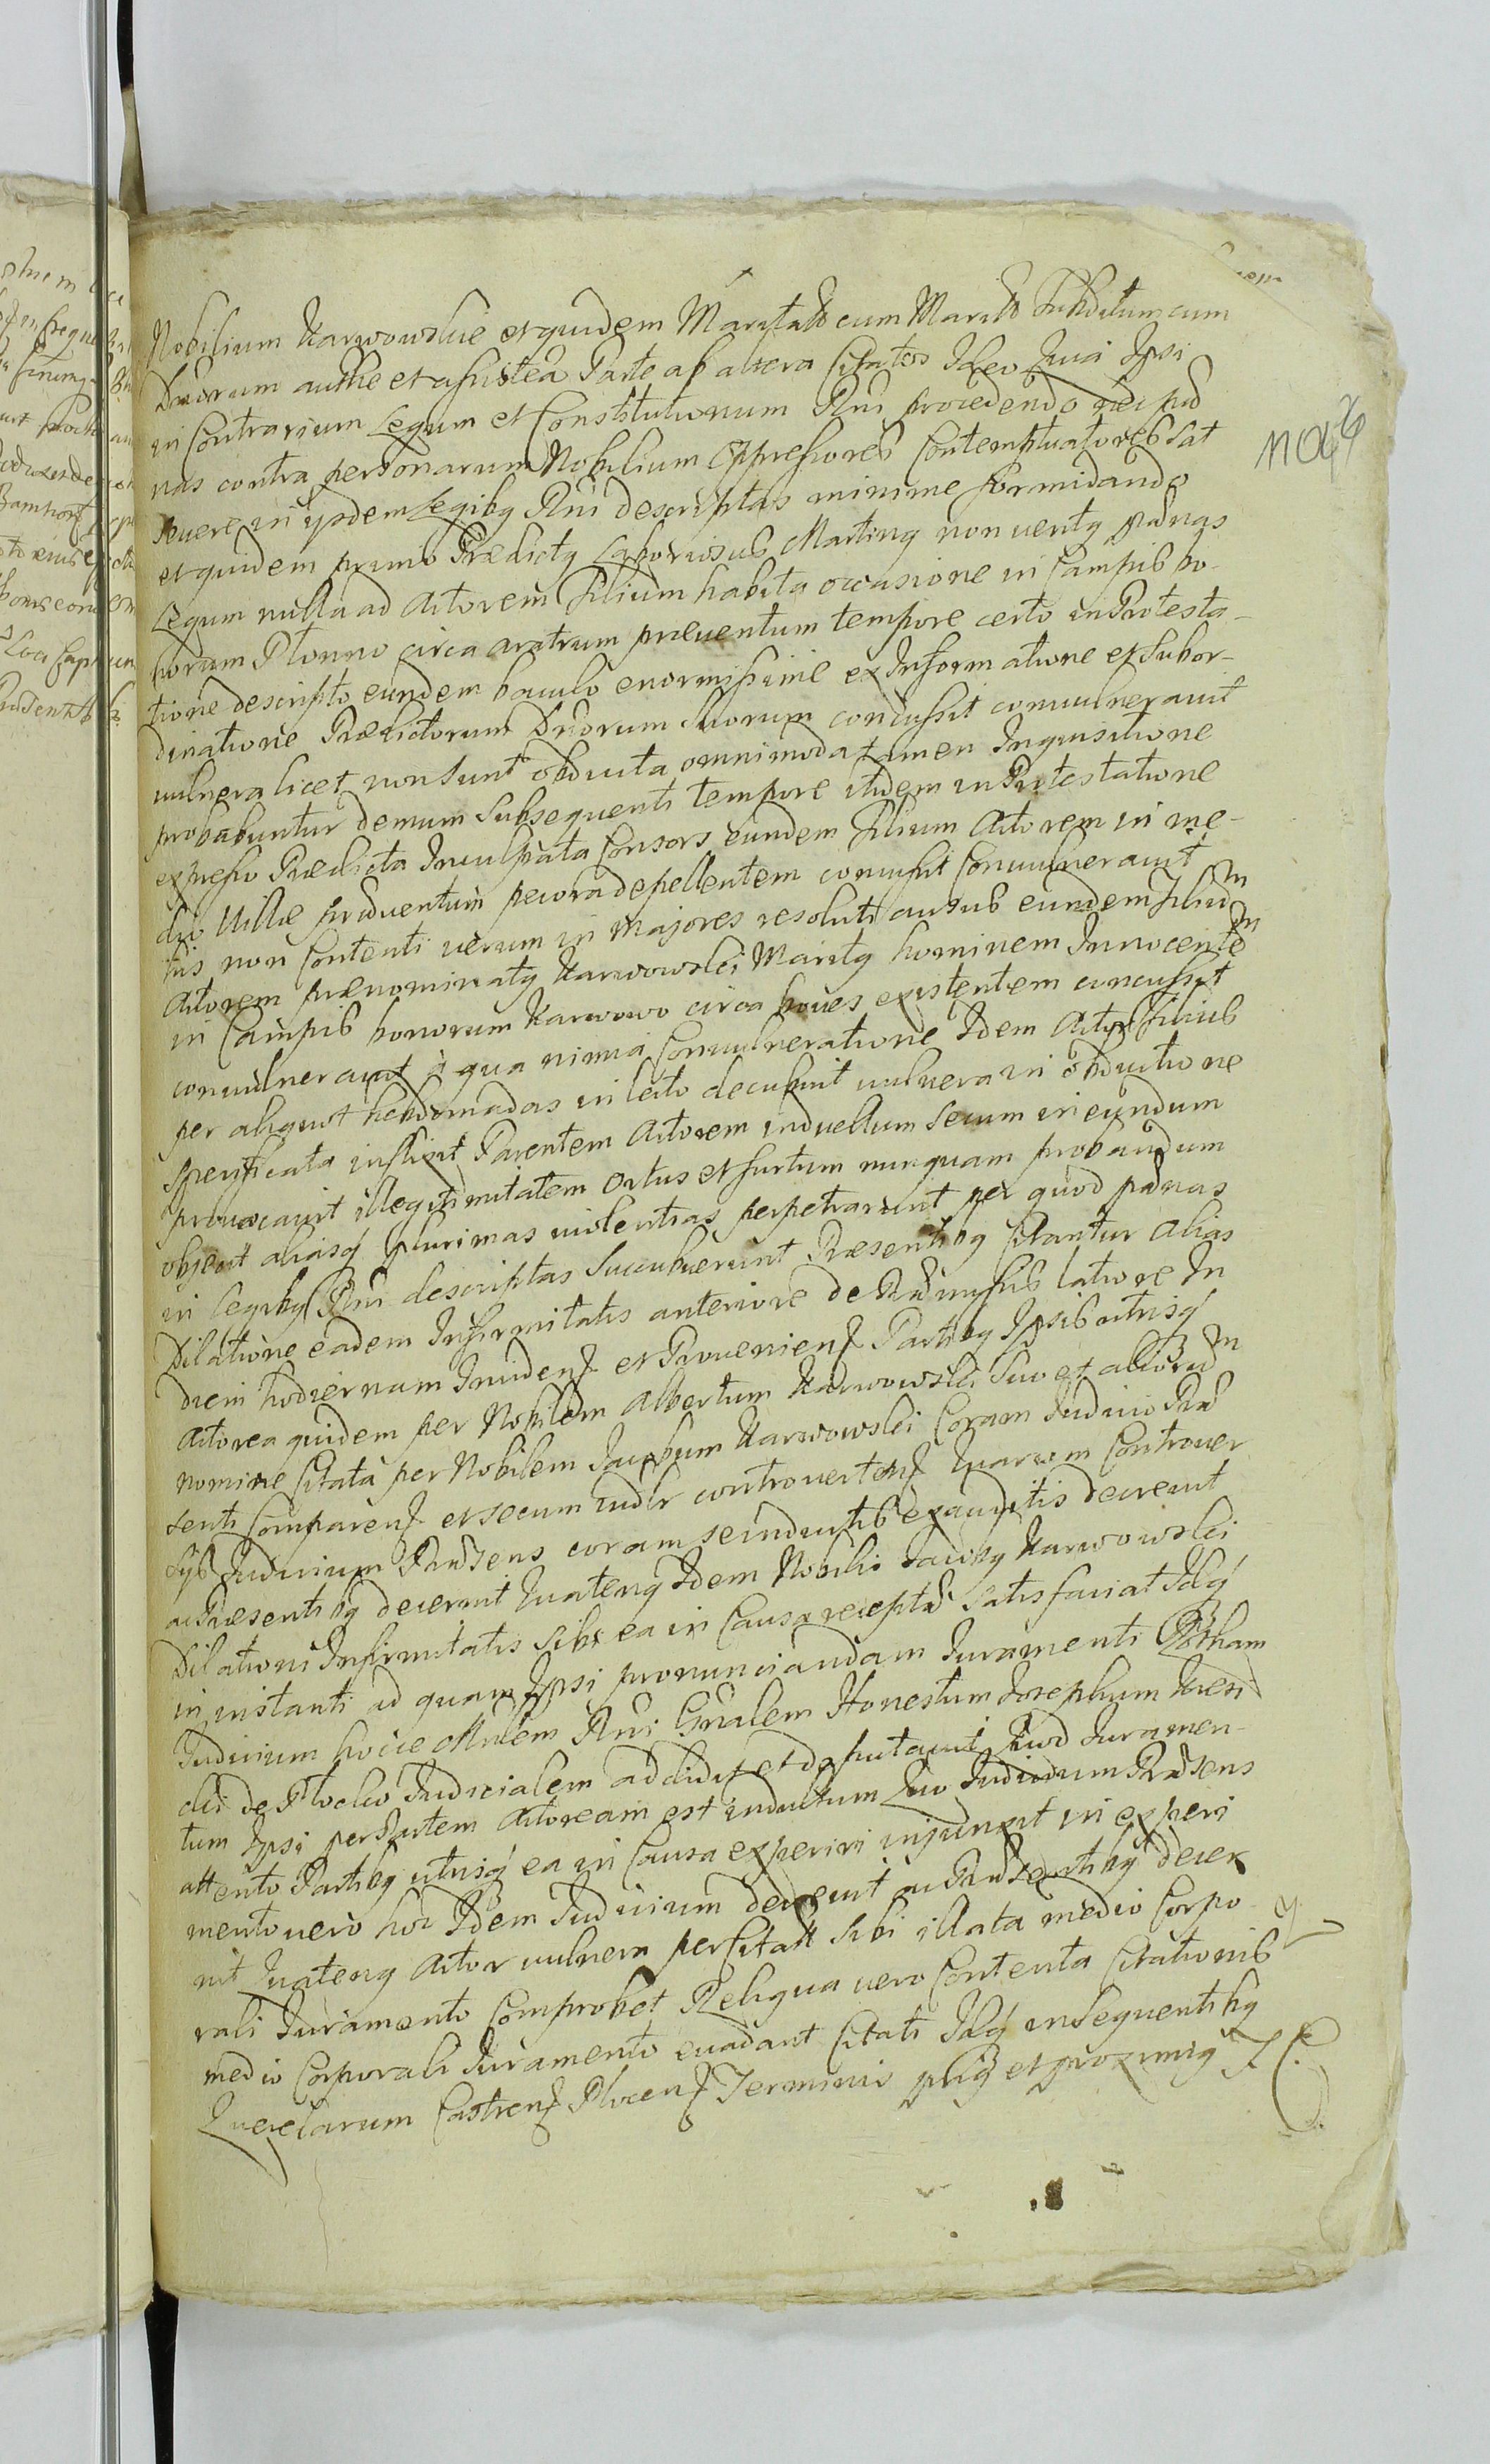 Nobilium Karwowskie et quidem Maritatae cum Marito Subditum cum
Dnorum authe et assistea Parte ab altera Citatos Ideo Quia Ipsi
in Contrarium Legum et Constitutionum Rni procedendo
nas contra personarum Nobilium Oppressores Contemptuatores sat
severe in ysdem Legibq Rni descriptas minime formidando
et quidem primo Praedictq Laboriosus Martinq non veritq paenas
Legum nulla ad Actorem filium habita occasione in Campis bo-
norum Plonno circa aratrum praeventum tempore certo in Protesta-
tione descripto eundem baculo enormissime ex Informatione et Subor-
dinatione Praedictorum Dnorum Suorum concussit convulneravit
vulnera licet non sunt obducta omnimoda tamen Inquisitione
probabuntur demum Subsequenti tempore itidem in Protestatione
expresso Praedicta Inculpata Consors eundem filium Actorem in me-
dio Villae praeventum pecora depellentem concussit Convulneravit
his non Contenti verum in majores resoluti ausus eundem filium
Actorem praenominatq Karwowski Maritq hominem Innocentem
in Campis bonorum Karwowo circa boves existentem concussit
convulneravit à qua nimia Convulneratione Idem Actor filius
per aliquot hebdomadas in lecto decubuit vulnera in obductione
specificata inflixit Parentem Actorem in duellum secum ineundum
provocavit illegitimitatem Ortus et furtum nunquam probandum
objecit aliasq plurimas violentias perpetrarunt per quod paenas
in Legibq Rni descriptas Succubuerunt Praesentibq Citantur Alias
Dilatione eadem Infirmitatis anteriore de latiore In
diem hodiernam Inciden et Provenien Partibq Ipsis utrisq
Actorea quidem per Nobilem Albertum Karwowski Suo et aliorum
nomine Citata per Nobilem Jacobum Karwowski Coram Judicio Prae
senti Comparen et secum controverten Quarum Controver
sys Judicium Praesens coram se inductis exauditis decrevit
ac Praesentibq decernit Quatenq Idem Nobilis Jacobq Karwowski
Dilationi Infirmitatis sibi ea in Causa receptae satisfaciat Idq
in instanti ad quam Ipsi pronunciandam Juramenti Rotham
Judicium hocce Rni Gnalem Honestum Josephum
cki de Plocko Judicialem addidit et deputavit Quod Juramen-
tum Ipsi per Partem Actoream est indultum Quo Judicium Praesens
attento Partibq utrisq ea in Causa experiri injunxit in experi
mento vero hoc Idem Judicium decrevit ac Praesentibq decer
nit Quatenq Actor vulnera per Citatos sibi illata medio Corpo
rali Juramento Comprobet Reliqua vero Contenta Citationis
medio Corporali Juramento evadant Citati Idq in Sequentibq
Querelarum Castren Plocen Terminis et proximiq